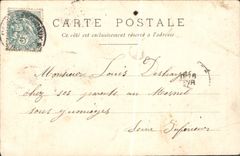 CARTE POSTALE
Ce côté est exclusivement réservé à l'adresse
Monsieur Louis Deshayes
chez ses parents au Mesnil
sous Jumièges
Seine Inférieure